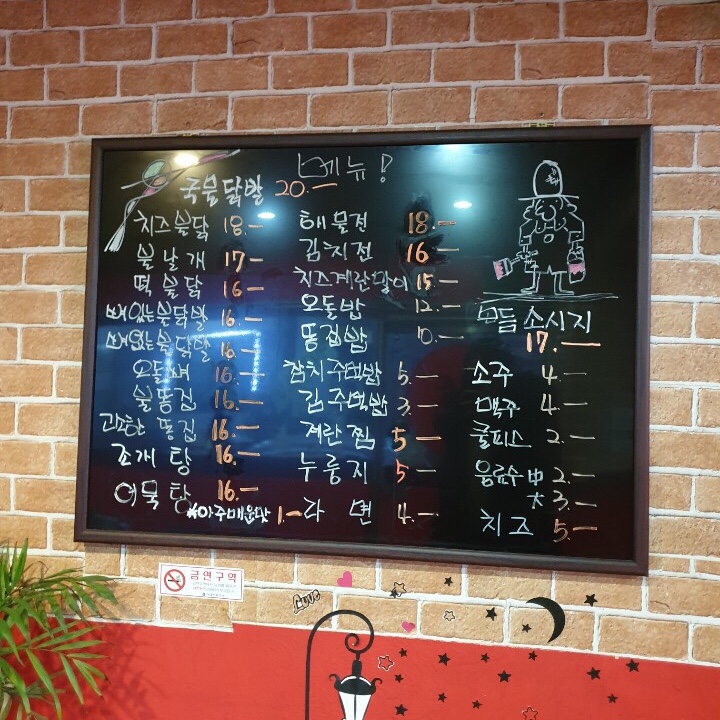 메뉴!
국물닭발 20.—
치즈불닭 18.—
불날개 17—
떡불닭 16—
뼈있는불닭발 16.—
뼈없는불닭발 16.—
오돌뼈 16.—
불똥집 16.—
고소한 똥집 16.—
조개탕 16.—
어묵탕 16.—
*아주매운맛 1.—
해물전 18.—
김치전 16—
치즈계란말이 15—
오돌밥 12.—
똥집밥 10.—
참치주먹밥 5.—
김주먹밥 3.—
계란찜 5—
누룽지 5—
라면 4.—
모듬소시지
17.—
소주 4.—
맥주 4.—
쿨피스 2.—
음료수 中 2.—
大 3.—
치즈 5.—
금연구역
Love